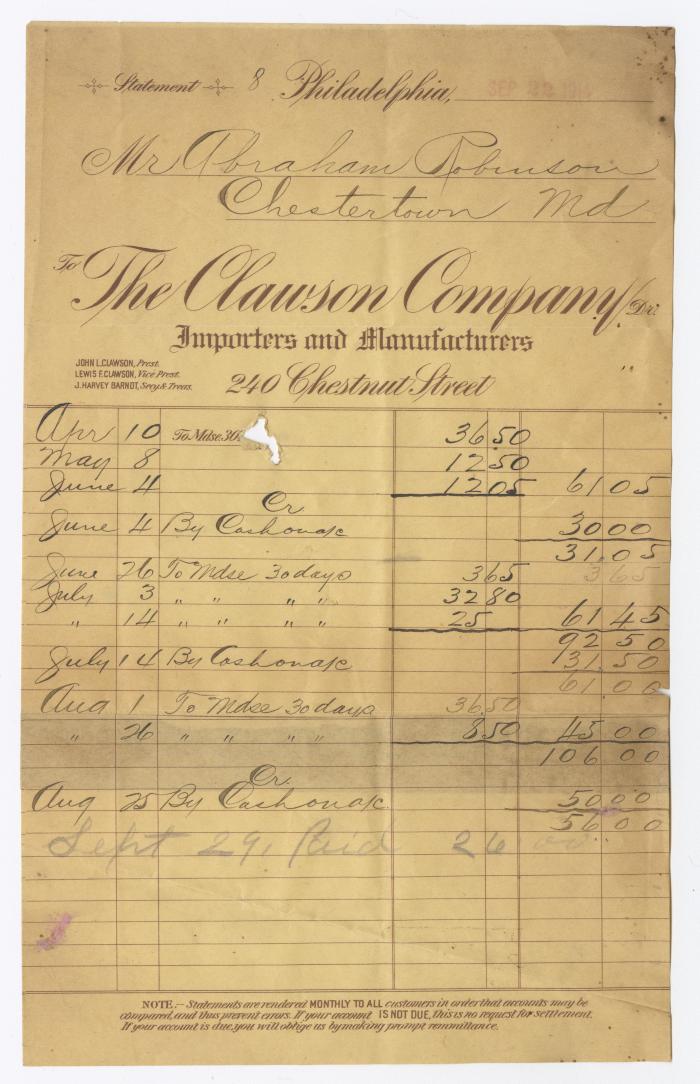 Statement 8 Philadelphia, SEP 22 191
Mr Abraham Robinson
Chestertown Md
To The Clawson Company, Dr.
Importers and Manufacturers
JOHN L. CLAWSON, Prest.
LEWIS F. CLAWSON, Vice Prest.
J. HARVEY BARNDT, Secy & Treas.
240 Chestnut Street
Apr 10 To Mdse 30 36 50
May 8 12 50
June 4 12 05 61 05
Cr
June 4 By Cash on a/c 30 00
31.05
June 26 To Mdse 30 days 3 65 3 65
July 3 " " " " 32 80
" 14 " " " " 25 61 45
92 50
July 14 By Cash on a/c 31.50
61 00
Aug 1 To Mdse 30 days 36 50
" 26 " " " " 8 50 45 00
106 00
Cr
Aug 25 By Cash on a/c 50 00
56 00
Sept 29, Paid 26 00
NOTE:- Statements are rendered MONTHLY TO ALL customers in order that accounts may be
compared, and thus prevent errors. If your account IS NOT DUE, this is no request for settlement.
If your account is due, you will oblige us by making prompt remmittance.